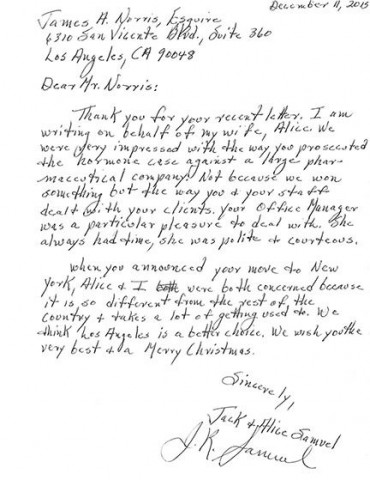 December 11, 2015
James A. Norris, Esquire
6310 San Vicente Blvd, Suite 360
Los Angeles, CA 90048
Dear Mr. Norris:
Thank you for your recent letter. I am
writing on behalf of my wife, Alice. We
were very impressed with the way you prosecuted
the hormone case against a large phar-
maceutical company. Not because we won
something but the way you & your staff
dealt with your clients. Your Office Manager
was a particular pleasure to deal with. She
always had time, she was polite & courteous.
When you announced your move to New
York, Alice & I both were both concerned because
it is so different from the rest of the
country & takes a lot of getting used to. We
think Los Angeles is a better choice. We wish you the
very best & a Merry Christmas.
Sincerely,
Jack & Alice Samuel
J.K. Samuel